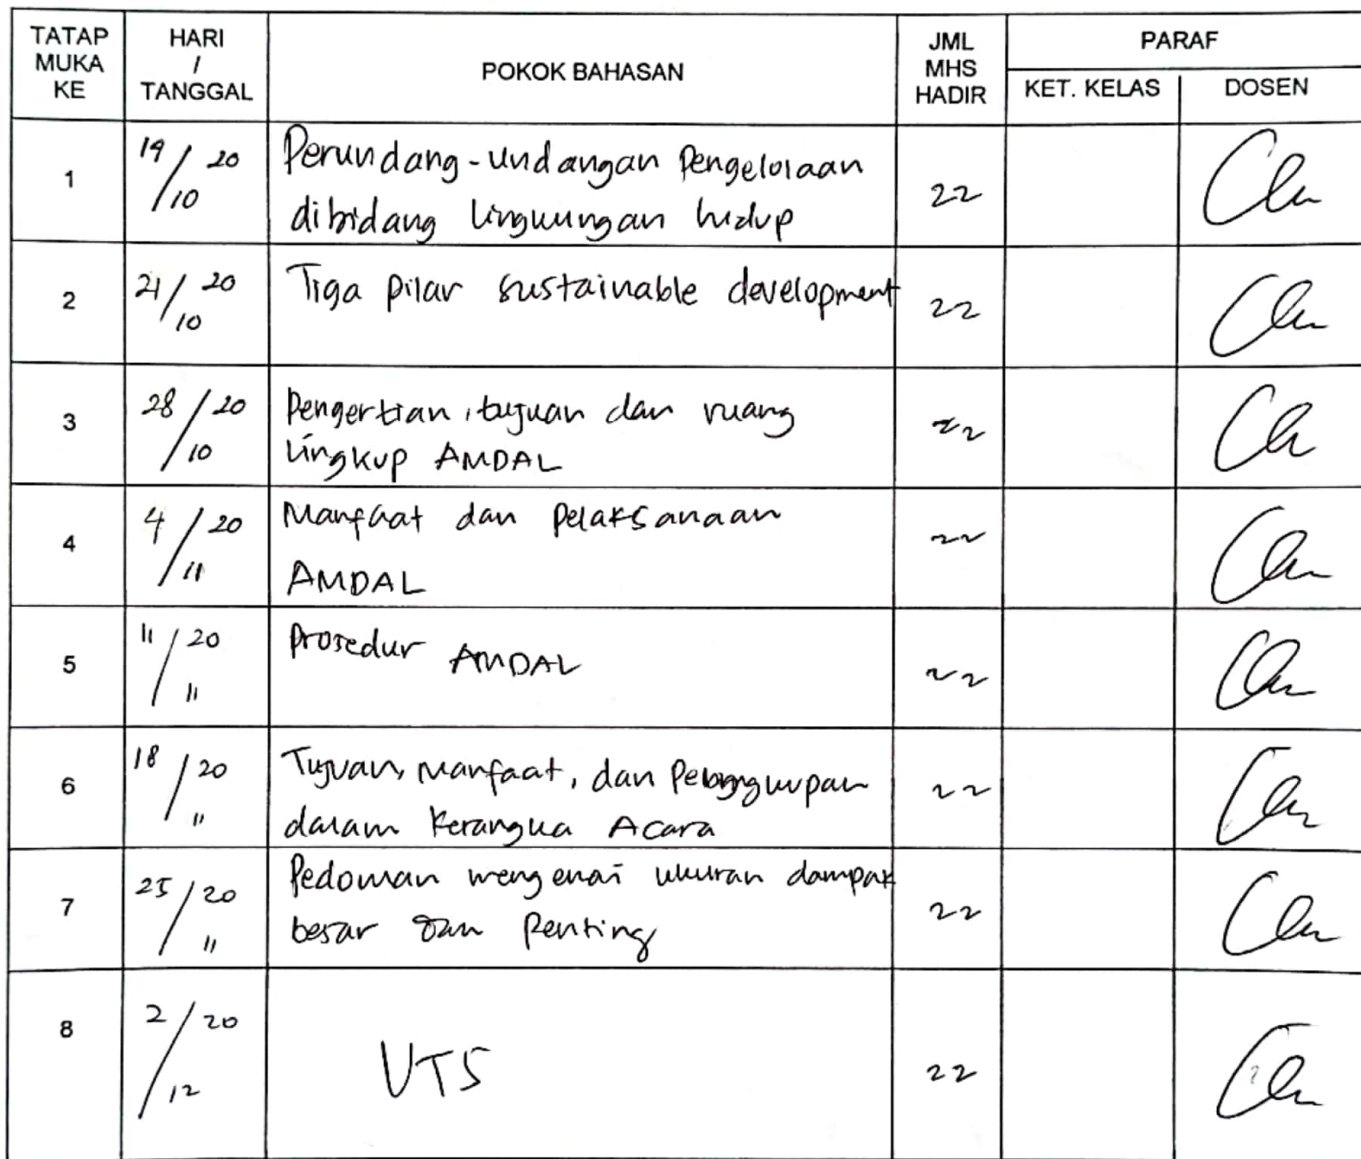 TATAP MUKA KE
HARI / TANGGAL
POKOK BAHASAN
JML MHS HADIR
PARAF
KET. KELAS
DOSEN
1
19/10 20
Perundang-undangan Pengelolaan
dibidang lingkungan hidup
22
2
21/10 20
Tiga pilar sustainable development
22
3
28/10 20
Pengertian, tujuan dan ruang
lingkup AMDAL
22
4
4/11 20
Manfaat dan Pelaksanaan
AMDAL
22
5
11/11 20
Prosedur AMDAL
22
6
18/11 20
Tujuan, Manfaat, dan
dalam Kerangka Acara
22
7
25/11 20
Pedoman mengenai ukuran dampak
besar dan Penting
22
8
2/12 20
UTS
22